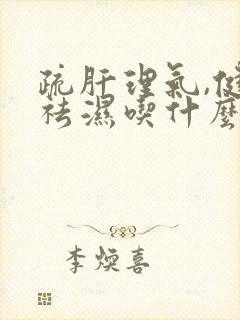 疏肝理氣,健
祛濕喫什麼
李煥喜